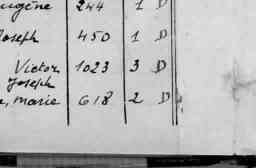 Eugène 244 1 D
Joseph 450 1 D
Victor 1023 3 D
Joseph
Marie 618 2 D